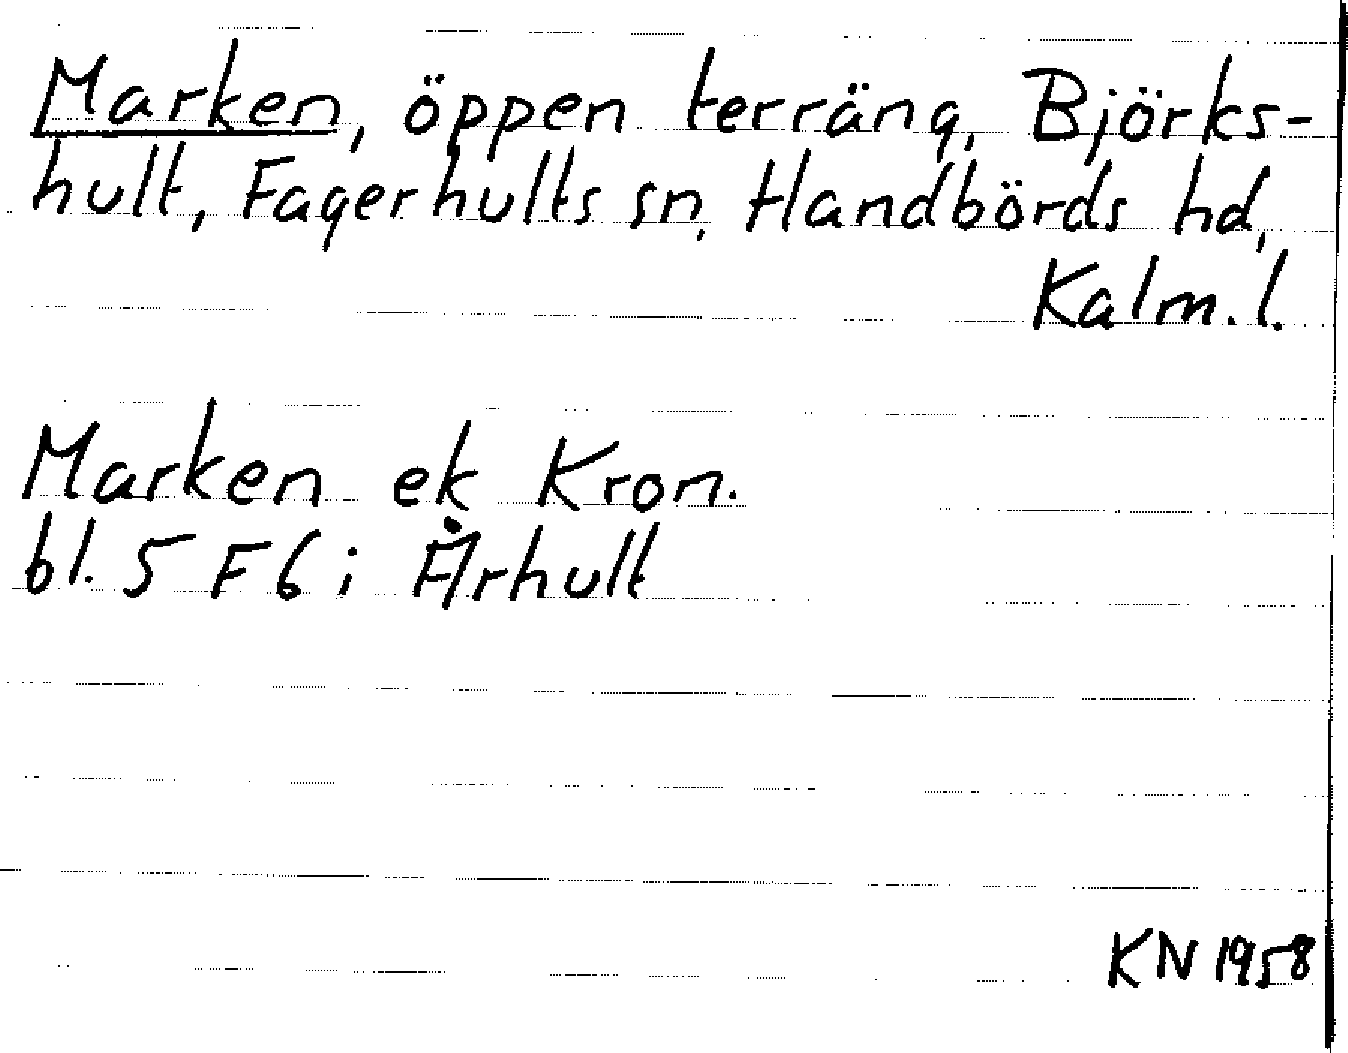 Marken, öppen terräng, Björks-
hult, Fagerhults sn, Handbörds hd,
Kalm. l.
Marken ek Kron.
bl. 5 F 6 i Århult
KN 1958